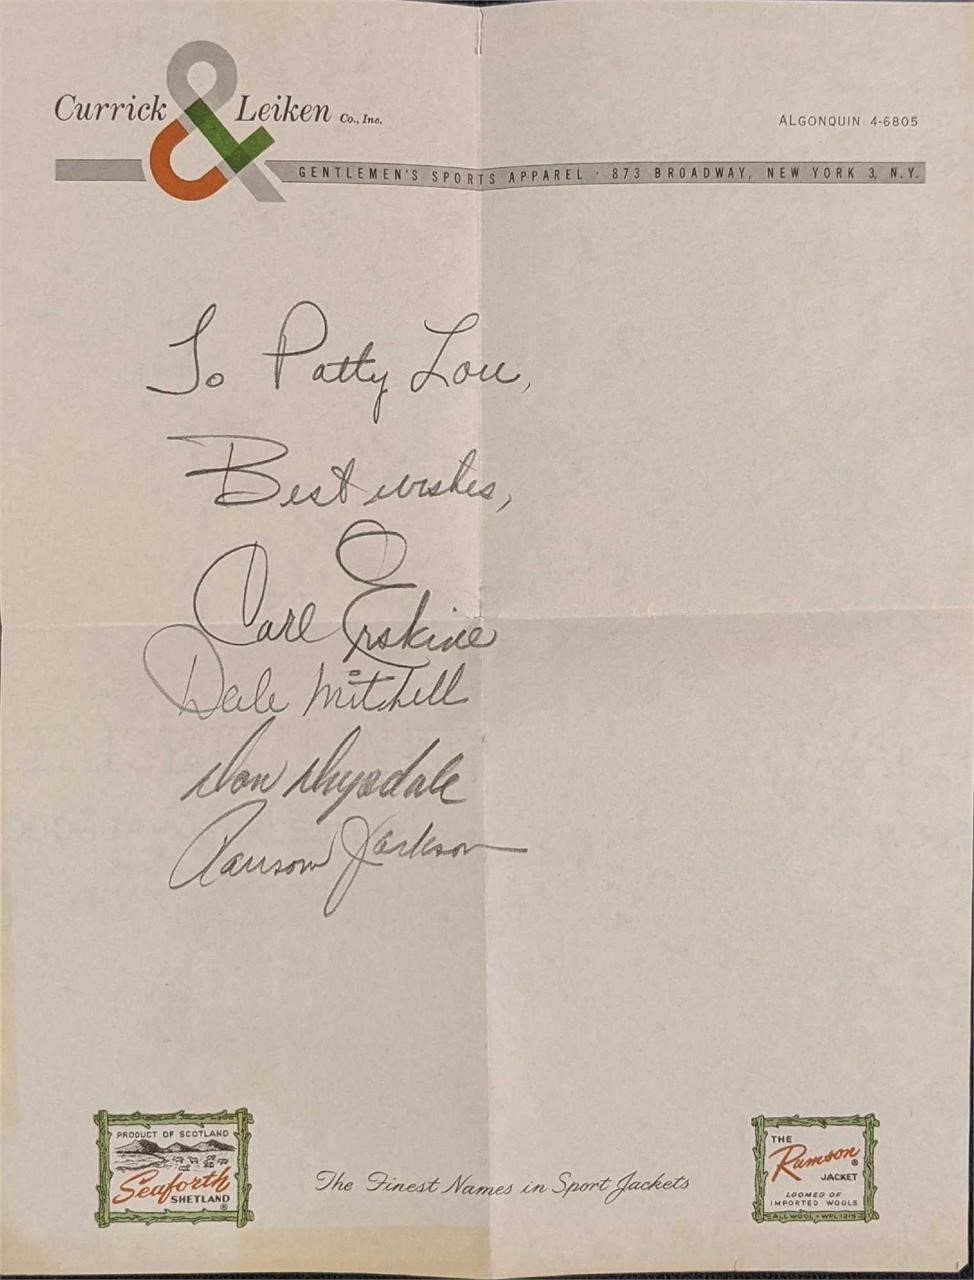 Currick & Leiken Co., Inc.
ALGONQUIN 4-6805
GENTLEMEN'S SPORTS APPAREL · 873 BROADWAY, NEW YORK 3, N.Y.
To Patty Lou,
Best wishes,
Carl Erskine
Dale Mitchell
Don Drysdale
Ransom Jackson
PRODUCT OF SCOTLAND
Seaforth
SHETLAND
®
The Finest Names in Sport Jackets
THE
Rumson ®
JACKET
LOOMED OF
IMPORTED WOOLS
ALL WOOL • WPL 1215